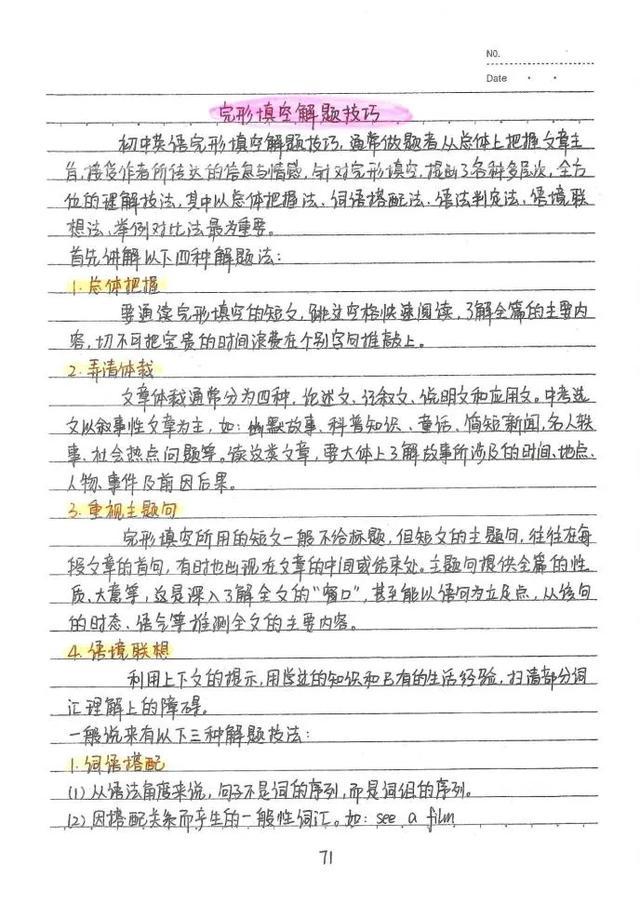 NO.
Date · ·
完形填空解题技巧
初中英语完形填空解题技巧,通常做题者从总体上把握文章主
旨,接受作者所传达的信息与情感,针对完形填空,提出了各种多层次,全方
位的理解技法,其中以总体把握法、词语搭配法、语法判定法、语境联
想法、举例对比法最为重要。
首先讲解以下四种解题法:
1.总体把握
要通读完形填空的短文,跳过空格快速阅读,了解全篇的主要内
容,切不可把宝贵的时间浪费在个别字句推敲上。
2.弄清体裁
文章体裁通常分为四种,论述文、记叙文、说明文和应用文。中考选
文以叙事性文章为主,如:幽默故事、科普知识、童话、简短新闻,名人轶
事、社会热点问题等。读这类文章,要大体上了解故事所涉及的时间、地点、
人物、事件及前因后果。
3.重视主题句
完形填空所用的短文一般不给标题,但短文的主题句,往往在每
段文章的首句,有时也出现在文章的中间或结束处。主题句提供全篇的性
质、大意等,这是深入了解全文的“窗口”,甚至能以语句为立足点,从该句
的时态、语气等推测全文的主要内容。
4.语境联想
利用上下文的提示,用学过的知识和已有的生活经验,扫清部分词
汇理解上的障碍。
一般说来有以下三种解题技法:
1.词语搭配
(1)从语法角度来说,句子不是词的序列,而是词组的序列。
(2)因搭配关系而产生的一般性词汇。如:see a film
71